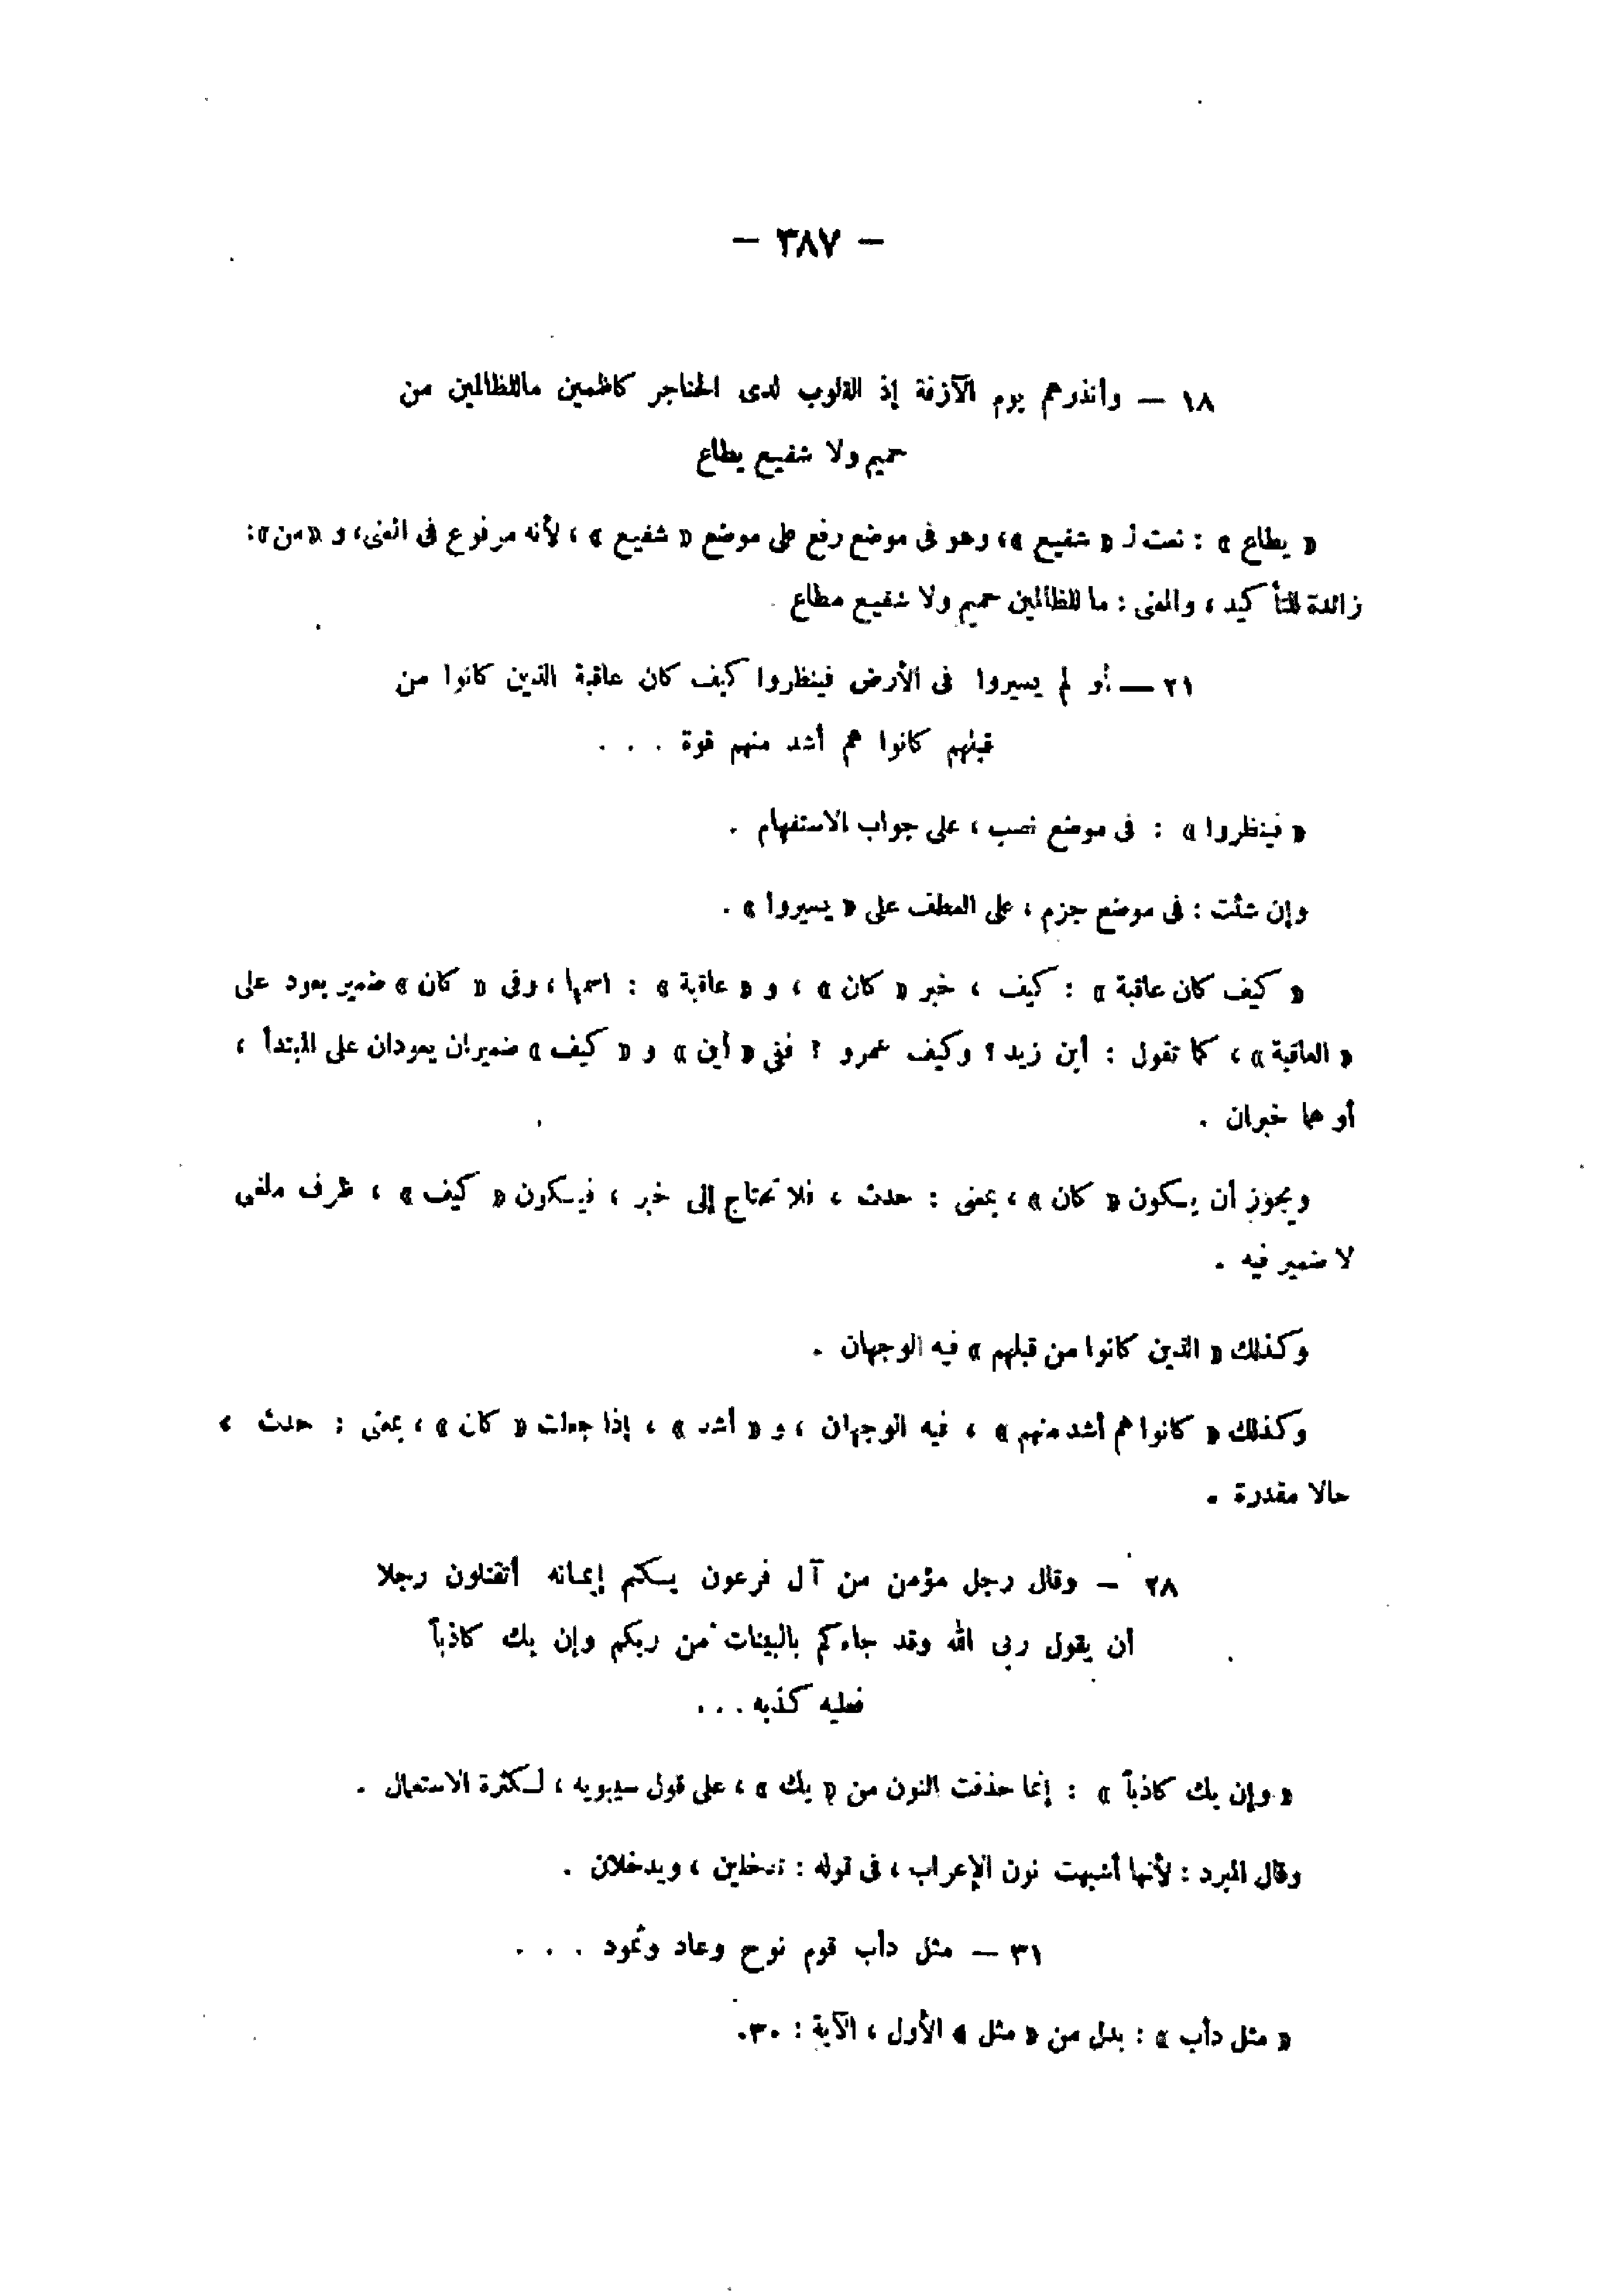 — ٣٨٧ —
١٨ — وأنذرهم يوم الآزفة إذ القلوب لدى الحناجر كاظمين ماللظالمين من
حميم ولا شفيع يطاع
« يطاع » : نعت لـ « شفيع »، وهو فى موضع رفع على موضع « شفيع » ، لأنه مرفوع فى المعنى، و «من»:
زائدة للتأكيد ، والمعنى : ما للظالمين حميم ولا شفيع مطاع
٢١ — أو لم يسيروا فى الأرض فينظروا كيف كان عاقبة الذين كانوا من
قبلهم كانوا هم أشد منهم قوة . . .
« فينظروا » : فى موضع نصب ، على جواب الاستفهام .
وإن شئت : فى موضع جزم ، على العطف على « يسيروا » .
« كيف كان عاقبة » : كيف ، خبر « كان » ، و « عاقبة » : اسمها ، وفى « كان » ضمير يعود على
« العاقبة » ، كما تقول : أين زيد ؟ وكيف عمرو ؟ ففى « أين » و « كيف » ضميران يعودان على المبتدأ ،
أو هما خبران .
ويجوز أن يكون « كان » ، بمعنى : حدث ، فلا تحتاج إلى خبر ، فيكون « كيف » ، ظرف ملغى
لا ضمير فيه .
وكذلك « الذين كانوا من قبلهم » فيه الوجهان .
وكذلك « كانوا هم أشد منهم » ، فيه الوجهان ، و « أشد » ، إذا جعلت « كان » ، بمعنى : حدث ،
حالا مقدرة .
٢٨ — وقال رجل مؤمن من آل فرعون يكتم إيمانه أتقتلون رجلا
أن يقول ربى الله وقد جاءكم بالبينات من ربكم وإن يك كاذباً
فعليه كذبه . . .
« وإن يك كاذباً » : إنما حذفت النون من « يك » ، على قول سيبويه ، لكثرة الاستعمال .
وقال المبرد : لأنها أشبهت نون الإعراب ، فى قوله : تدخلين ، ويدخلان .
٣١ — مثل دأب قوم نوح وعاد وثمود . . .
« مثل دأب » : بدل من « مثل » الأول ، الآية : ٣٠.